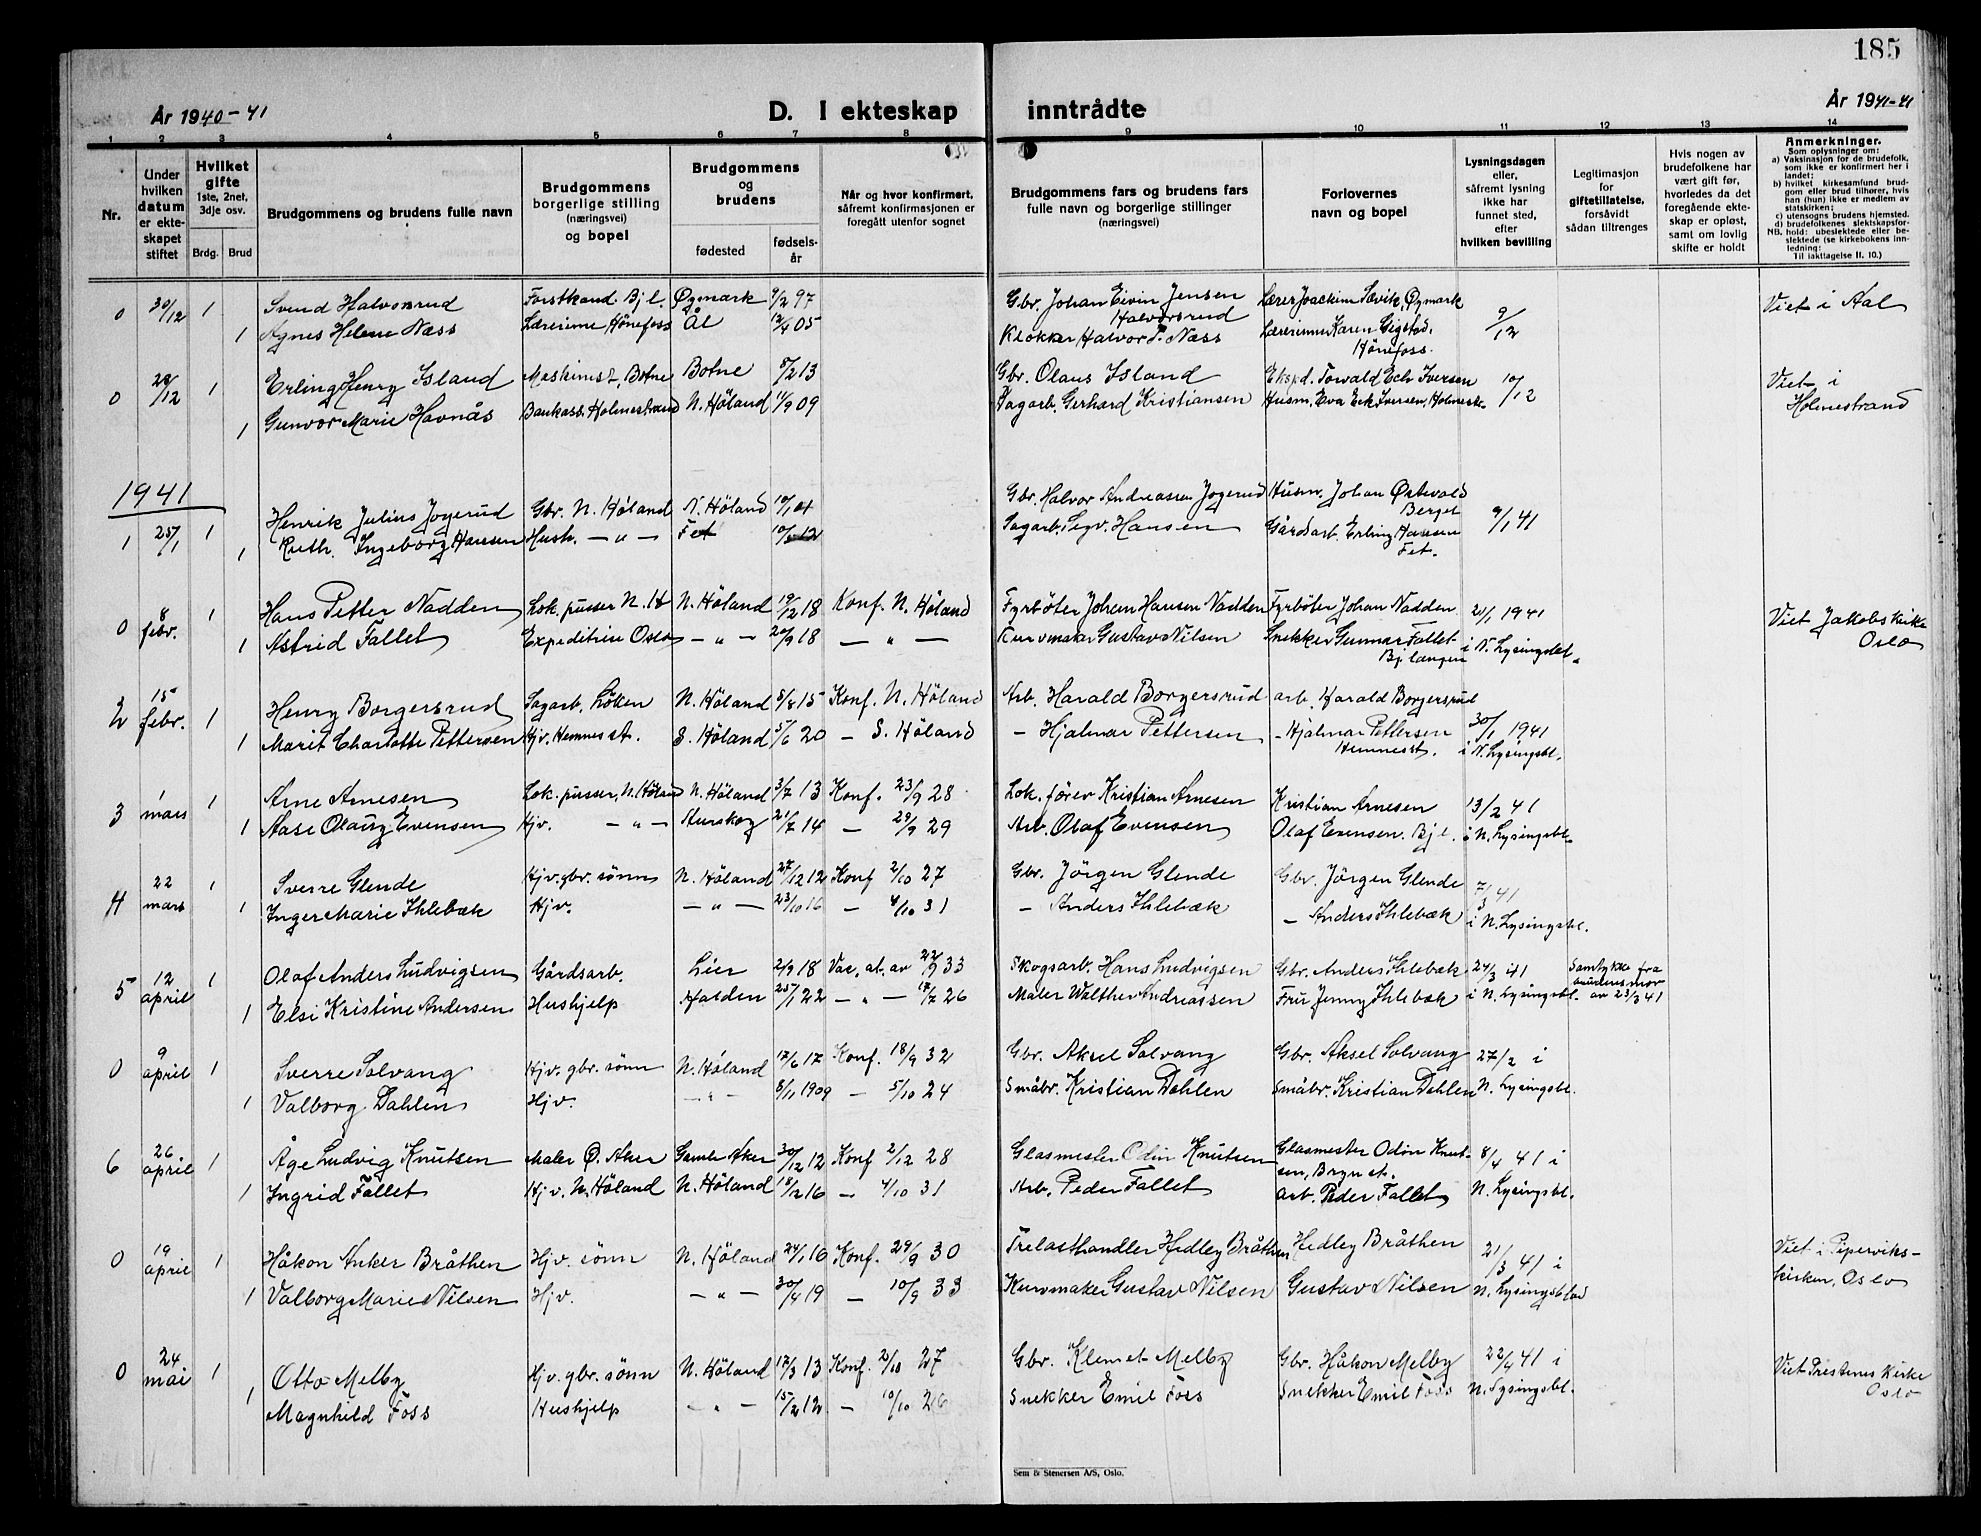 185
År 1940-41
D. I ekteskap inntrådte
År 1941-41
1 2 3 4 5 6 7 8 9 10 11 12 13 14
Nr.
Under hvilken datum er ekteskapet stiftet
Hvilket gifte 1ste, 2net, 3dje osv.
Brdg. Brud
Brudgommens og brudens fulle navn
Brudgommens borgerlige stilling (næringsvei) og bopel
Brudgommens og brudens
fødested
fødselsår
Når og hvor konfirmert, såfremt konfirmasjonen er foregått utenfor sognet
Brudgommens fars og brudens fars fulle navn og borgerlige stillinger (næringsvei)
Forlovernes navn og bopel
Lysningsdagen eller, såfremt lysning ikke har funnet sted, efter hvilken bevilling
Legitimasjon for giftetillatelse, forsåvidt sådan tiltrenges
Hvis nogen av brudefolkene har vært gift før, hvorledes da det foregående ekteskap er opløst, samt om lovlig skifte er holdt
Anmerkninger.
Som oplysninger om:
a) Vaksinasjon for de brudefolk, som ikke er konfirmert her i landet:
b) hvilket kirkesamfund brudgom eller brud tilhører, hvis han (hun) ikke er medlem av statskirken;
c) utensogns brudens hjemsted.
d) brudefolkenes slektskapsforhold: ubeslektede eller beslektede (se kirkebokens innledning:
NB.
Til iakttagelse II. 10.)
0 30/12 1 Svend Halvorsrud Forstkand. Bjl. Øymark 9/2 97 Gbr. Johan Eivin Jensen Halvorsrud Lærer Joackim Sævik, Øymark 9/12 Viet i Aal
1 Agnes Helene Næss Lærerinne Hönefoss Ål 12/4 05 Klokker Halvor T. Næss Lærerinne Karen Gigstad, Hönefoss.
0 28/12 1 Erling Henry Island Maskinist, Botne Botne 8/2 13 Gbr. Olaus Island Eksped. Torvald Eck Iversen 10/12 Viet i Holmestrand
1 Gunvor Marie Havnås Bankass. Holmestrand N. Höland 11/9 09 Sagarb. Gerhard Kristiansen Husm. Eva Eck Iversen, Holmestr.
1941
1 25/1 1 Henrik Julius Jogerud Gbr. N. Höland N. Höland 10/1 01 Gbr. Halvor Andreassen Jogerud Husm. Johan Østvold Berget 9/1 41
1 Ruth Ingeborg Hansen Hush. — " — Fet 10/5 12 Sagarb. Sigv. Hansen Gårdsarb. Erling Hansen Fet.
0 8 febr. 1 Hans Petter Nadden Lok. pusser N. H N. Höland 19/12 18 Konf. N. Höland Fyrböter Johan Hansen Nadden Fyrböter Johan Nadden 21/1 1941 Viet Jakobs Kirke Oslo
1 Astrid Fallet Expeditrise Oslo — " — 20/9 18 — " — Kurvmaker Gustav Nilsen Snekker Gunnar Fallet Bj.langen i N. Lysingsbl.
2 15 febr. 1 Henry Borgersrud Sagarb. Löken N. Höland 5/8 15 Konf. N. Höland Arb. Harald Borgersrud arb. Harald Borgersrud 30/1 1941
1 Marit Charlotte Pettersen Hjv. Hemnes st. S. Höland 5/6 20 — S. Höland — Hjalmar Pettersen — Hjalmar Pettersen Hemnesst. i N. Lysingsbl.
3 1 mars 1 Arne Arnesen Lok. pusser, N. Höland N. Höland 3/7 13 Konf. 23/9 28 Lok. förer Kristian Arnesen Kristian Arnesen 13/2 41
1 Aase Olaug Evensen Hjv. — " — Aurskog 21/7 14 — 29/9 29 Arb. Olaf Evensen Olaf Evensen. Bjl. i N. Lysingsbl.
4 22 mars 1 Sverre Glende Hjv. gbr. sönn N. Höland 27/12 12 Konf 2/10 27 Gbr. Jörgen Glende Gbr. Jörgen Glende 7/3 41
1 Inger Marie Ihlebæk Hjv. — " — 23/10 16 — 4/10 31 — Anders Ihlebæk — Anders Ihlebæk i N. Lysingsbl.
5 12 april 1 Olaf Anders Ludvigsen Gårdsarb. Lier 2/9 18 Vac. at. av 22/9 33 Skogsarb. Hans Ludvigsen Gbr. Anders Ihlebæk 24/3 41 Samtykke fra brudens mor av 23/3 41
1 Elsi Kristine Andersen Hushjelp Halden 25/1 22 — " — 17/7 26 Maler Walther Andreassen Fru Jenny Ihlebæk i N. Lysingsbl.
0 9 april 1 Sverre Solvang Hjv. gbr. sönn N. Höland 17/6 17 Konf. 18/9 32 Gbr. Aksel Solvang Gbr. Aksel Solvang 27/2 i
1 Valborg Dahlen Hjv. — " — 8/1 1909 — 5/10 24 Småbr. Kristian Dahlen Småbr. Kristian Dahlen N. Lysingsbl.
6 26 april 1 Åge Ludvig Knutsen Maler Ø. Aker Gamle Aker 30/12 12 Konf 2/12 28 Glasmester Odin Knutsen Glasmester Odin Knutsen, Bryn st. 8/4 41 i
1 Ingrid Fallet Hjv. N. Höland N. Höland 18/2 16 — 4/10 31 Arb. Peder Fallet arb. Peder Fallet N. Lysingsbl.
0 19 april 1 Håkon Anker Bråthen Hjv. sönn N. Höland 24/1 16 Konf. 29/9 30 Trelasthandler Hedley Bråthen Hedley Bråthen 21/3 41 i Viet i Piperviks-
1 Valborg Marie Nilsen Hjv. — " — 30/4 19 — 10/9 33 Kurvmaker Gustav Nilsen Gustav Nilsen N. Lysingsblad kirken, Oslo
0 24 mai 1 Otto Melby Hjv. gbr. sönn N. Höland 17/3 13 Konf. 2/10 27 Gbr. Klemet Melby Gbr. Håkon Melby 22/4 41 i Viet Prestenes Kirke
1 Magnhild Foss Hushjelp — " — 15/2 12 — 10/10 26 Snekker Emil Foss Snekker Emil Foss N. Lysingsbl. Oslo
Sem & Stenersen A/S, Oslo.